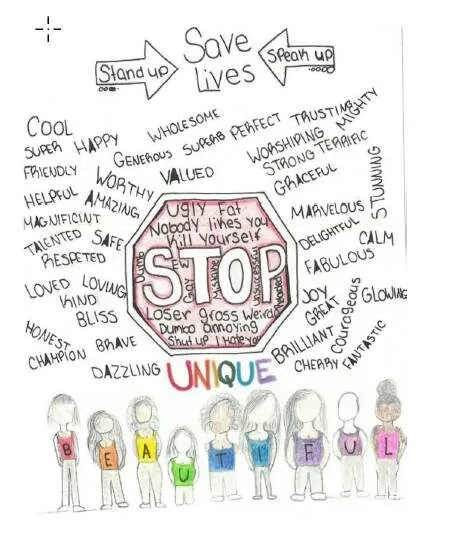 Stand up
Save
Lives
Speak up
COOL
SUPER
HAPPY
WHOLESOME
GENEROUS
SUPERB
PERFECT
TRUSTING
MIGHTY
FRIENDLY
WORTHY
VALUED
WORSHIPING
STRONG
TERRIFIC
GRACEFUL
STUNNING
HELPFUL
AMAZING
MAGNIFICINT
MARVELOUS
TALENTED
SAFE
DELIGHTFUL
CALM
RESPETED
FABULOUS
LOVED
LOVING
KIND
BLISS
JOY
GREAT
Courageous
GLOWING
HONEST
CHAMPION
BRAVE
DAZZLING
BRILLIANT
CHERRY
FANTASTIC
Ugly Fat
Nobody likes you
Kill Yourself
Dumb
EW
Gay
Mistake
Unsuccessful
STOP
Loser gross Weirdo
Dumbo annoying
Shut up I Hate you
UNIQUE
BEAUTIFUL